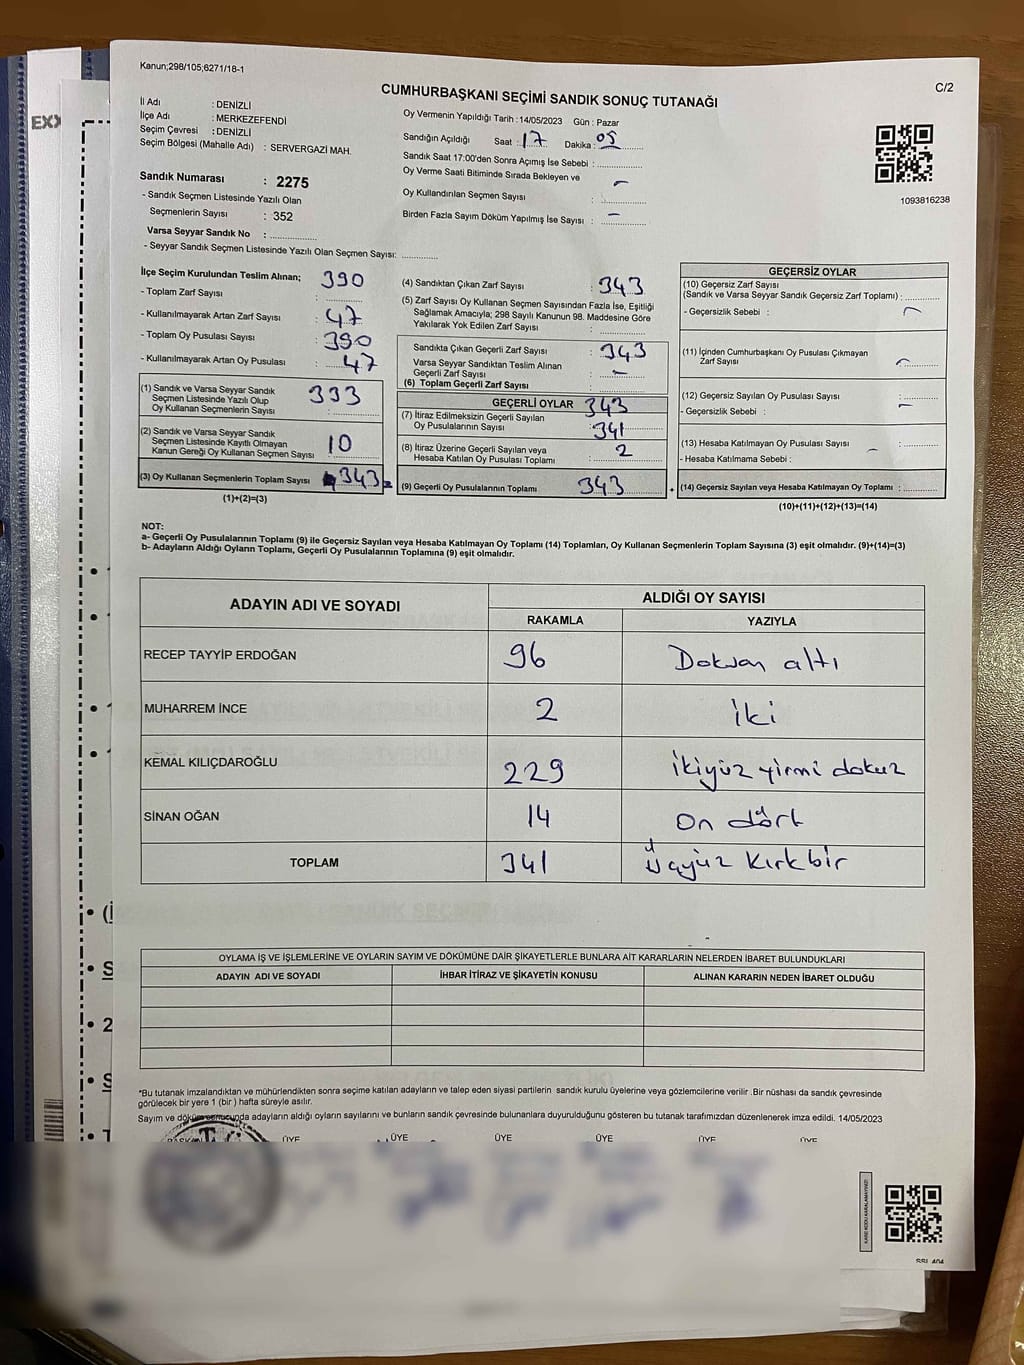 Kanun;298/105;6271/18-1
C/2
CUMHURBAŞKANI SEÇİMİ SANDIK SONUÇ TUTANAĞI
İl Adı : DENİZLİ
İlçe Adı : MERKEZEFENDİ
Seçim Çevresi : DENİZLİ
Seçim Bölgesi (Mahalle Adı) : SERVERGAZİ MAH.
Sandık Numarası : 2275
- Sandık Seçmen Listesinde Yazılı Olan
Seçmenlerin Sayısı : 352
Varsa Seyyar Sandık No :
- Seyyar Sandık Seçmen Listesinde Yazılı Olan Seçmen Sayısı:
Oy Vermenin Yapıldığı Tarih :14/05/2023 Gün : Pazar
Sandığın Açıldığı Saat : 17 Dakika : 05
Sandık Saat 17:00'den Sonra Açımış İse Sebebi :
Oy Verme Saati Bitiminde Sırada Bekleyen ve
Oy Kullandırılan Seçmen Sayısı : -
Birden Fazla Sayım Döküm Yapılmış İse Sayısı : -
1093816238
EXX
İlçe Seçim Kurulundan Teslim Alınan;
- Toplam Zarf Sayısı : 390
- Kullanılmayarak Artan Zarf Sayısı : 47
- Toplam Oy Pusulası Sayısı : 390
- Kullanılmayarak Artan Oy Pusulası : 47
(1) Sandık ve Varsa Seyyar Sandık
Seçmen Listesinde Yazılı Olup
Oy Kullanan Seçmenlerin Sayısı : 333
(2) Sandık ve Varsa Seyyar Sandık
Seçmen Listesinde Kayıtlı Olmayan
Kanun Gereği Oy Kullanan Seçmen Sayısı : 10
(3) Oy Kullanan Seçmenlerin Toplam Sayısı : 343
(1)+(2)=(3)
(4) Sandıktan Çıkan Zarf Sayısı : 343
(5) Zarf Sayısı Oy Kullanan Seçmen Sayısından Fazla İse, Eşitliği
Sağlamak Amacıyla; 298 Sayılı Kanunun 98. Maddesine Göre
Yakılarak Yok Edilen Zarf Sayısı :
Sandıkta Çıkan Geçerli Zarf Sayısı : 343
Varsa Seyyar Sandıktan Teslim Alınan
Geçerli Zarf Sayısı : -
(6) Toplam Geçerli Zarf Sayısı : 343
GEÇERLİ OYLAR
(7) İtiraz Edilmeksizin Geçerli Sayılan
Oy Pusulalarının Sayısı : 341
(8) İtiraz Üzerine Geçerli Sayılan veya
Hesaba Katılan Oy Pusulası Toplamı : 2
(9) Geçerli Oy Pusulalarının Toplamı : 343
GEÇERSİZ OYLAR
(10) Geçersiz Zarf Sayısı
(Sandık ve Varsa Seyyar Sandık Geçersiz Zarf Toplamı) :
- Geçersizlik Sebebi : -
(11) İçinden Cumhurbaşkanı Oy Pusulası Çıkmayan
Zarf Sayısı : -
(12) Geçersiz Sayılan Oy Pusulası Sayısı :
- Geçersizlik Sebebi : -
(13) Hesaba Katılmayan Oy Pusulası Sayısı :
- Hesaba Katılmama Sebebi : -
(14) Geçersiz Sayılan veya Hesaba Katılmayan Oy Toplamı :
(10)+(11)+(12)+(13)=(14)
NOT:
a- Geçerli Oy Pusulalarının Toplamı (9) ile Geçersiz Sayılan veya Hesaba Katılmayan Oy Toplamı (14) Toplamları, Oy Kullanan Seçmenlerin Toplam Sayısına (3) eşit olmalıdır. (9)+(14)=(3)
b- Adayların Aldığı Oyların Toplamı, Geçerli Oy Pusulalarının Toplamına (9) eşit olmalıdır.
ADAYIN ADI VE SOYADI
ALDIĞI OY SAYISI
RAKAMLA YAZIYLA
RECEP TAYYİP ERDOĞAN 96 Doksan altı
MUHARREM İNCE 2 iki
KEMAL KILIÇDAROĞLU 229 ikiyüz yirmi dokuz
SİNAN OĞAN 14 On dört
TOPLAM 341 Üçyüz Kırkbir
OYLAMA İŞ VE İŞLEMLERİNE VE OYLARIN SAYIM VE DÖKÜMÜNE DAİR ŞİKAYETLERLE BUNLARA AİT KARARLARIN NELERDEN İBARET BULUNDUKLARI
ADAYIN ADI VE SOYADI İHBAR İTİRAZ VE ŞİKAYETİN KONUSU ALINAN KARARIN NEDEN İBARET OLDUĞU
*Bu tutanak imzalandıktan ve mühürlendikten sonra seçime katılan adayların ve talep eden siyasi partilerin sandık kurulu üyelerine veya gözlemcilerine verilir .Bir nüshası da sandık çevresinde
görülecek bir yere 1 (bir ) hafta süreyle asılır.
Sayım ve döküm sonucunda adayların aldığı oyların sayılarını ve bunların sandık çevresinde bulunanlara duyurulduğunu gösteren bu tutanak tarafımızdan düzenlenerek imza edildi. 14/05/2023
ÜYE ÜYE ÜYE ÜYE ÜYE ÜYE